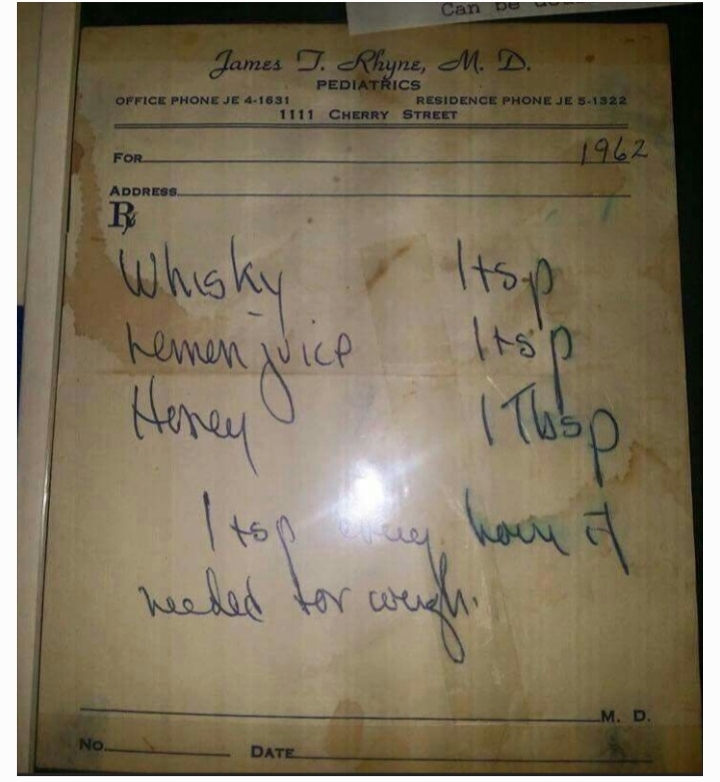 Can be
James T. Rhyne, M. D.
PEDIATRICS
OFFICE PHONE JE 4-1631 RESIDENCE PHONE JE 5-1322
1111 CHERRY STREET
FOR 1962
ADDRESS
℞
Whisky 1 tsp
Lemon juice 1 tsp
Honey 1 Tbsp
1 tsp every hour if
needed for cough.
M. D.
No. DATE